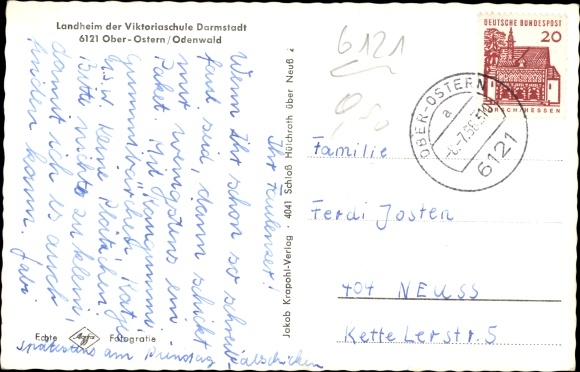 Landheim der Viktoriaschule Darmstadt
6121 Ober-Ostern/Odenwald
Ihr Faulenzer!
Wenn Ihr schon so schreib-
faul seid, dann schickt
mir wenigstens ein
Paket. Mit Kaugummi,
Gummibärchen, Katjes
u.s.w. Keine Plätzchen.
Bitte nicht zu klein,
damit ich es auch
finden kann. Gabi
spätestens am Dienstag abschicken
Echte Agfa Fotografie
Jakob Krapohl-Verlag · 4041 Schloß Hülchrath über Neuß
6121
0,50
DEUTSCHE BUNDESPOST
20
LORSCH/HESSEN
OBER-OSTERN
a
6121
Familie
Ferdi Josten
404 NEUSS
Kettelerstr. 5